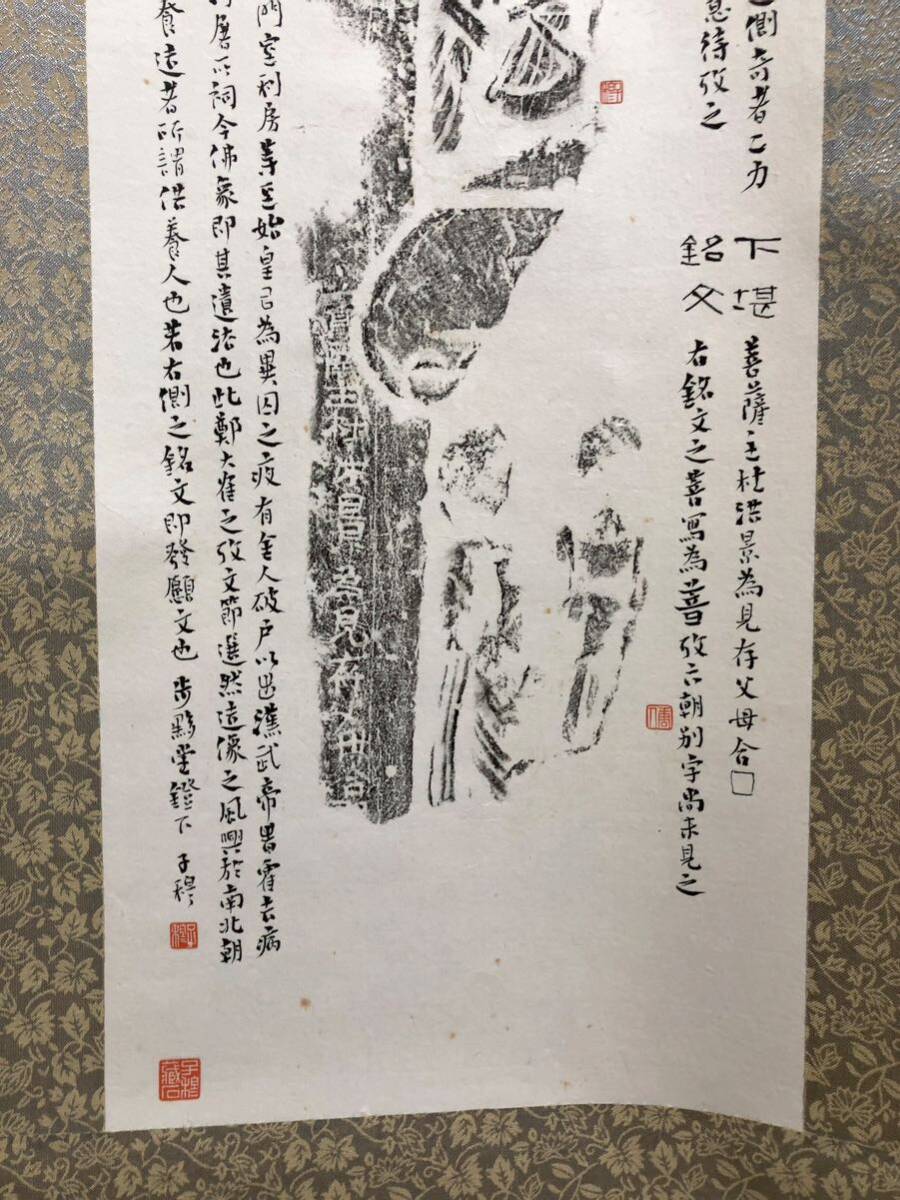 側者二力
息待攷之
下堪
銘文
菩薩主杜洪景為見存父母合□
右銘文之菩寫為攷六朝別字尚未見之
村洪景為見存父母
門室利房等至始皇已為異囚之夜有金人破戶以出漢武帝時霍去病
屠所祠今佛象即其遺法也此鄭大崔之攷文節選然造像之風興於南北朝
養造者所謂供養人也若右側之銘文即發願文也 步黟堂鐙下 子穆
子穆
子穆藏石